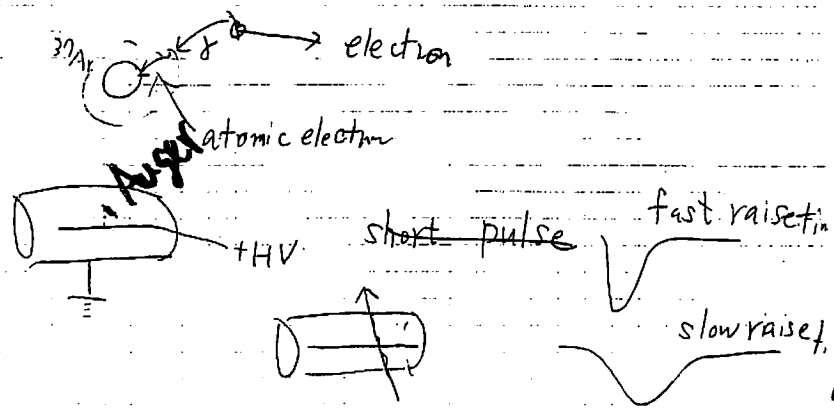 37Ar
γ
electron
atomic electron
Auger
+HV
short pulse
fast raisetim
slow raiset